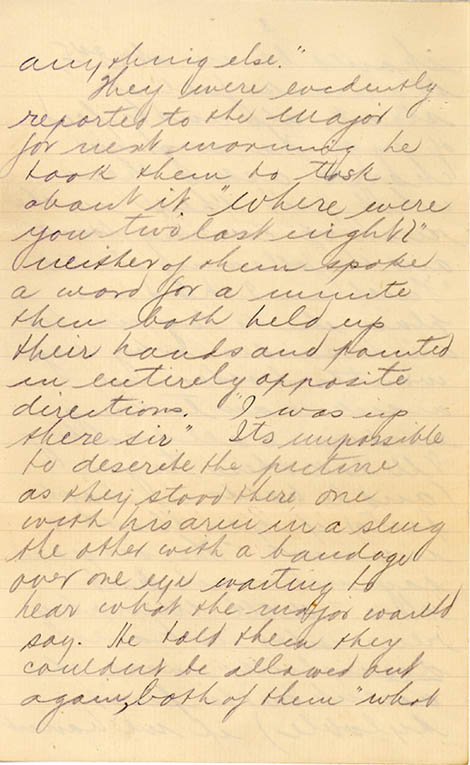 anything else."
They were evidently
reported to the Major
for next morning he
took them to task
about it. "Where were
you two last night?"
neither of them spoke
a word for a minute
then both held up
their hands and pointed
in entirely opposite
directions. "I was up
there sir" Its impossible
to describe the picture
as they stood there one
with his arm in a sling
the other with a bandage
over one eye waiting to
hear what the major would
say. He told them they
couldn't be allowed out
again, both of them "what